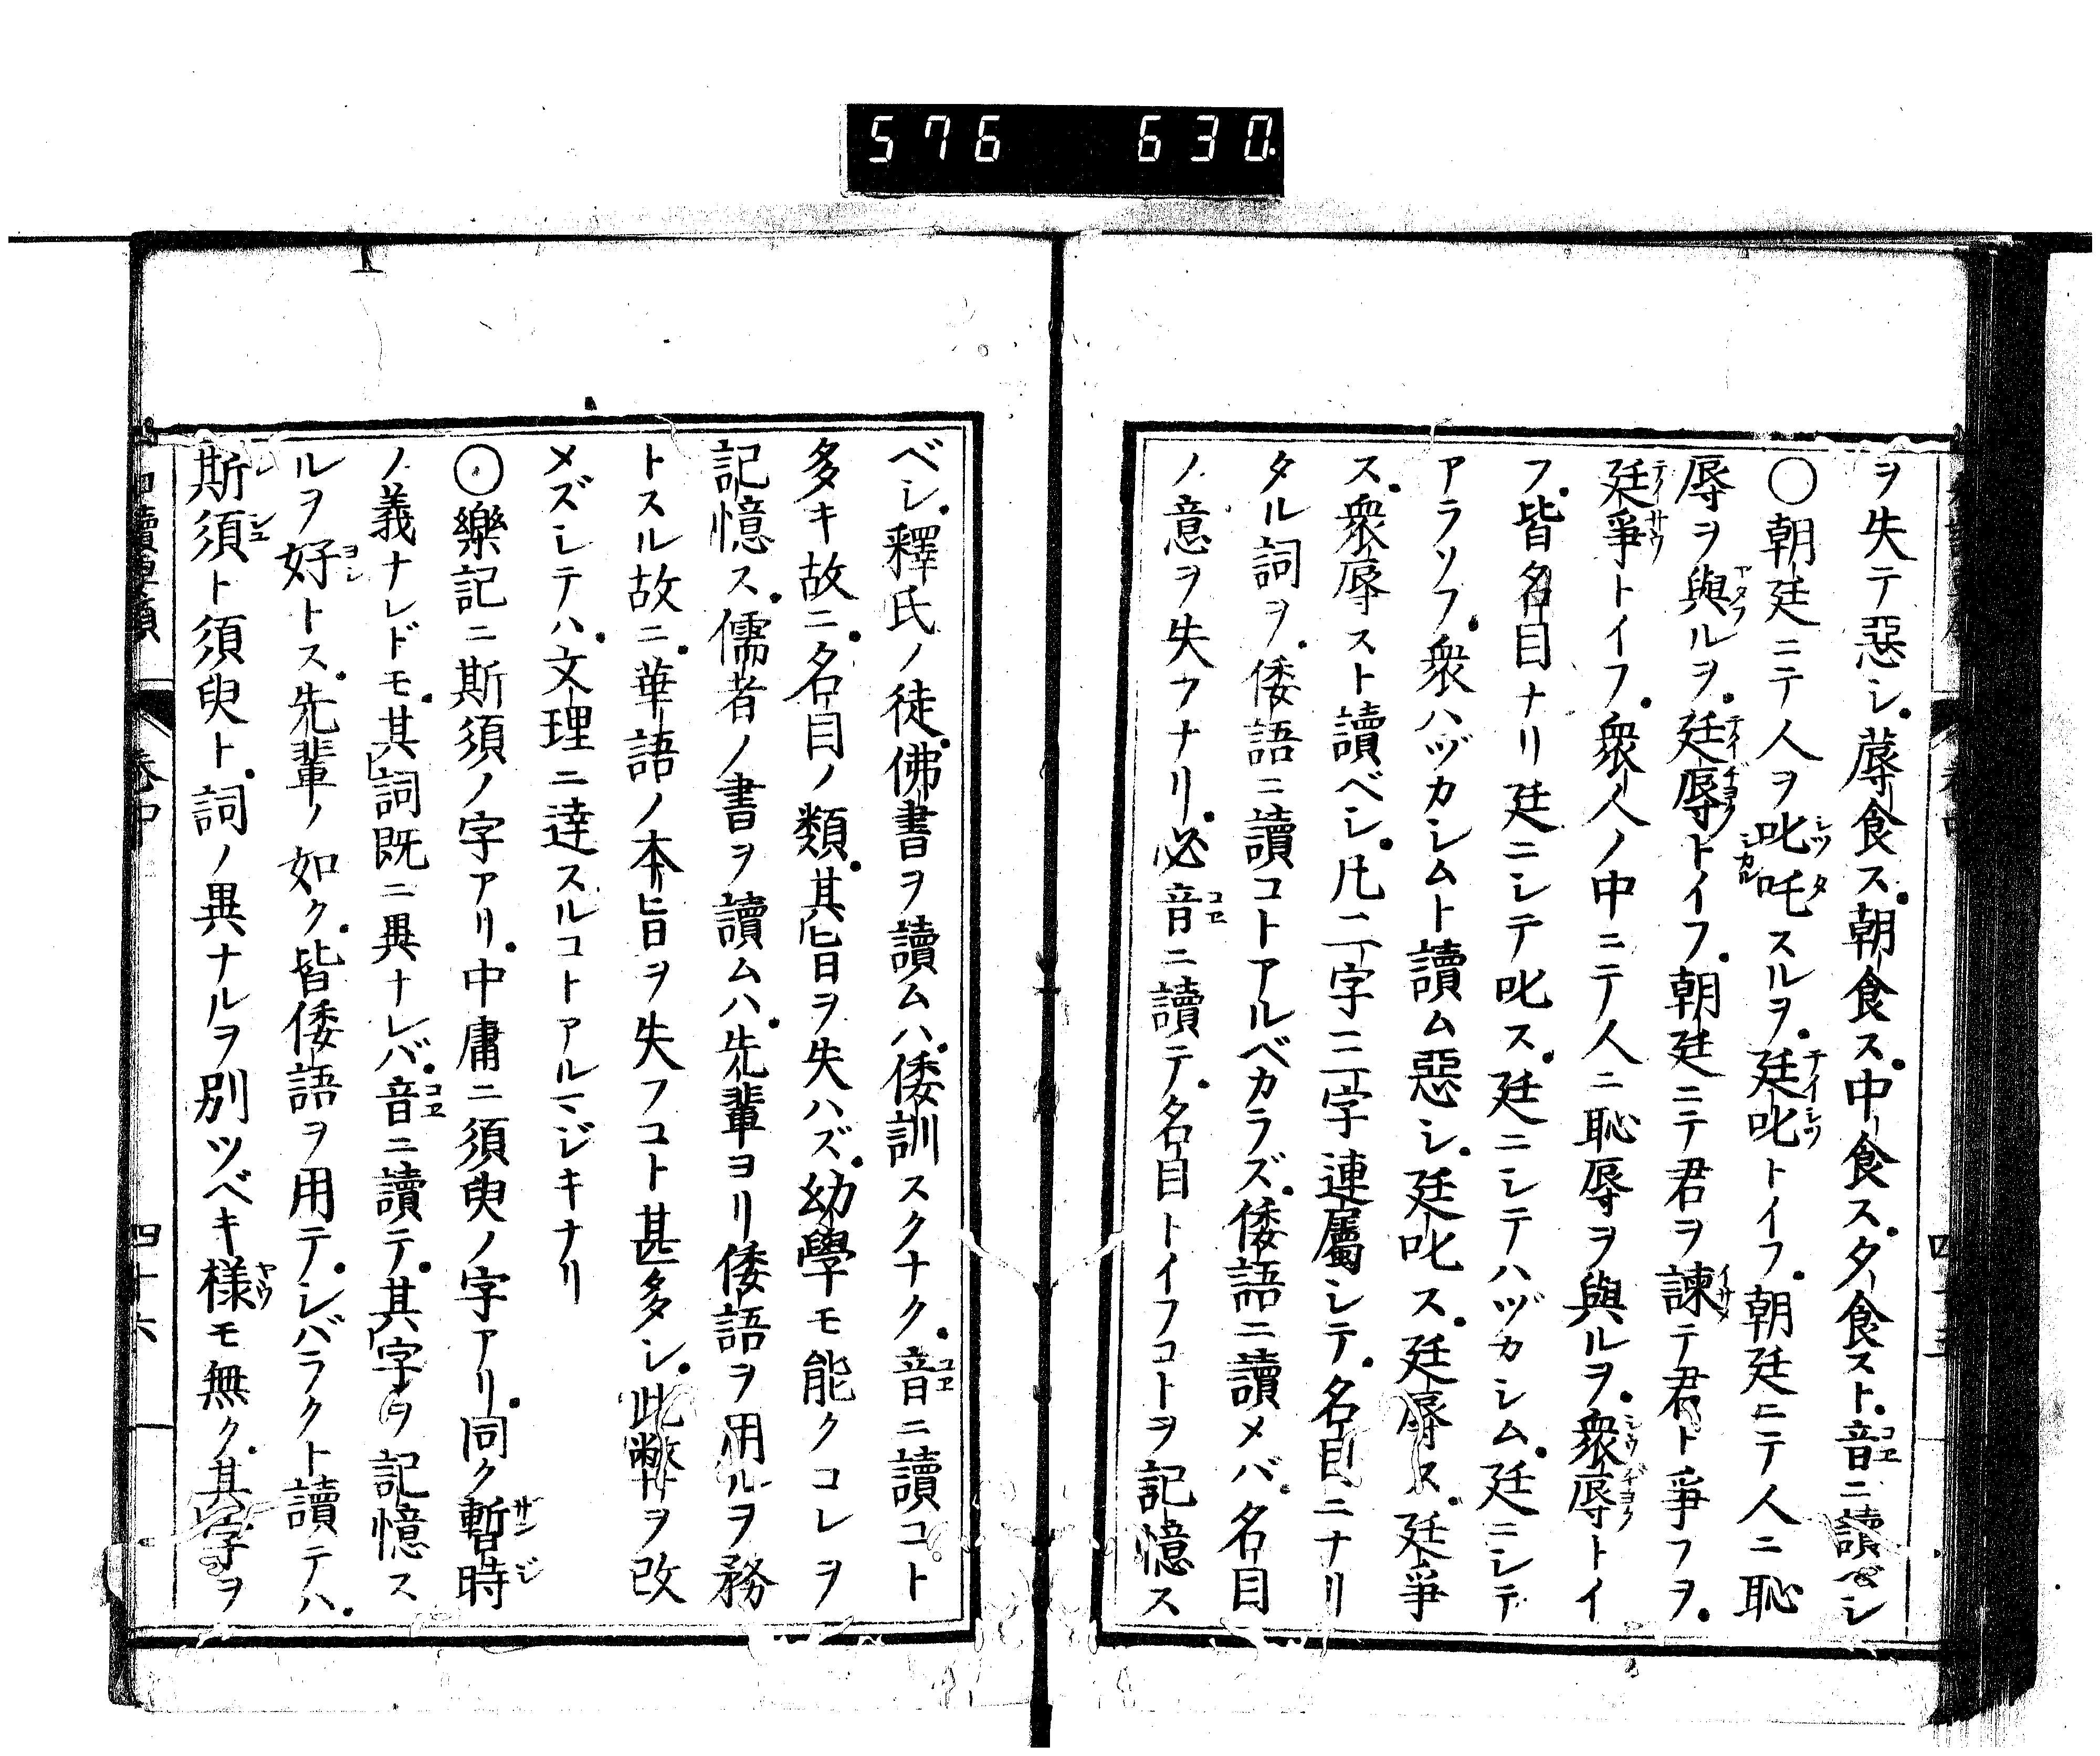 576 630
ヲ失テ惡シ。蓐食ス。朝食ス。中食ス。夕食スト。音ニ讀ベシ
〇朝廷ニテ人ヲ叱吒スルヲ。廷叱トイフ。朝廷ニテ人ニ恥
辱ヲ與ルヲ。廷辱トイフ。朝廷ニテ君ヲ諫テ君ト爭フヲ。
廷爭トイフ。衆人ノ中ニテ人ニ恥辱ヲ與ルヲ。衆辱トイ
フ。皆名目ナリ廷ニシテ叱ス。廷ニシテハヅカシム。廷ニシテ
アラソフ。衆ハヅカシムト讀ム惡シ。廷叱ス。廷辱ス。廷爭
ス。衆辱スト讀ベシ。凡二字三字連屬シテ。名目ニナリ
タル詞ヲ。倭語ニ讀コトアルベカラズ。倭語ニ讀メバ。名目
ノ意ヲ失フナリ。必音ニ讀テ。名目トイフコトヲ記憶ス
ベシ。釋氏ノ徒。佛書ヲ讀ムハ。倭訓スクナク。音ニ讀コト
多キ故ニ。名目ノ類。其旨ヲ失ハズ。幼學モ能クコレヲ
記憶ス。儒者ノ書ヲ讀ムハ。先輩ヨリ倭語ヲ用ルヲ務
トスル故ニ。華語ノ本旨ヲ失フコト甚多シ。此弊ヲ改
メズシテハ。文理ニ達スルコトアルマジキナリ
〇樂記ニ斯須ノ字アリ。中庸ニ須臾ノ字アリ。同ク暫時
ノ義ナレドモ。其詞既ニ異ナレバ。音ニ讀テ。其字ヲ記憶ス
ルヲ好トス。先輩ノ如ク。皆倭語ヲ用テ。シバラクト讀テハ。
斯須ト須臾ト。詞ノ異ナルヲ別ツベキ樣モ無ク。其字ヲ
卷中
四十六